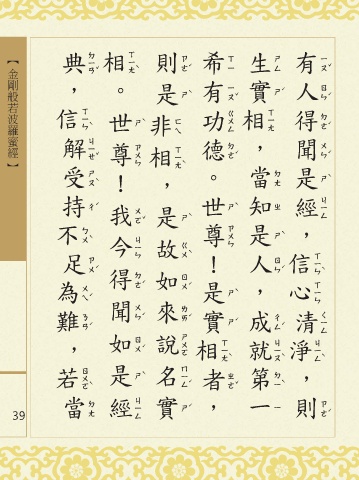 有人得聞是經，信心清淨，則
生實相，當知是人，成就第一
希有功德。世尊！是實相者，
則是非相，是故如來說名實
相。世尊！我今得聞如是經
典，信解受持不足為難，若當
【金剛般若波羅蜜經】
39